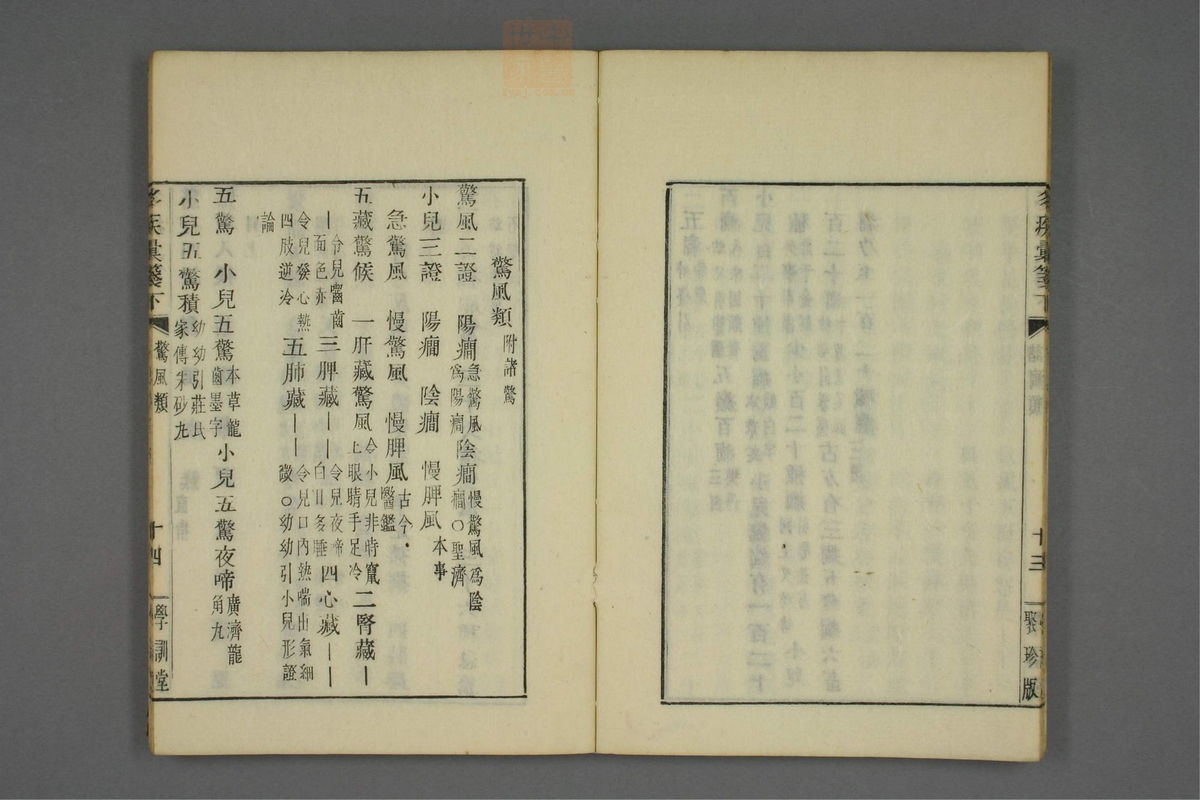 名疾彙箋下
十三
聚珍版
驚風類附諸驚
驚風二證　陽癎急驚風爲陽癎陰癎慢驚風爲陰癎○聖濟
小兒三證　陽癎　陰癎　慢脾風本事
急驚風　慢驚風　慢脾風古今醫鑑
五藏驚候　一肝藏驚風令小兒非時竄上眼睛手足冷二腎藏｜
｜令兒嚙齒面色赤三脾藏｜｜令兒夜啼白日多睡四心藏｜｜
令兒發心熱四肢逆冷五肺藏｜｜令兒口內熱喘出氣細微○幼幼引小兒形證
論
五驚　小兒五驚本草龍齒墨字小兒五驚夜啼廣濟龍角丸
小兒五驚積幼幼引莊氏家傳朱砂丸
名疾彙箋下
驚風類
十四
學訓堂